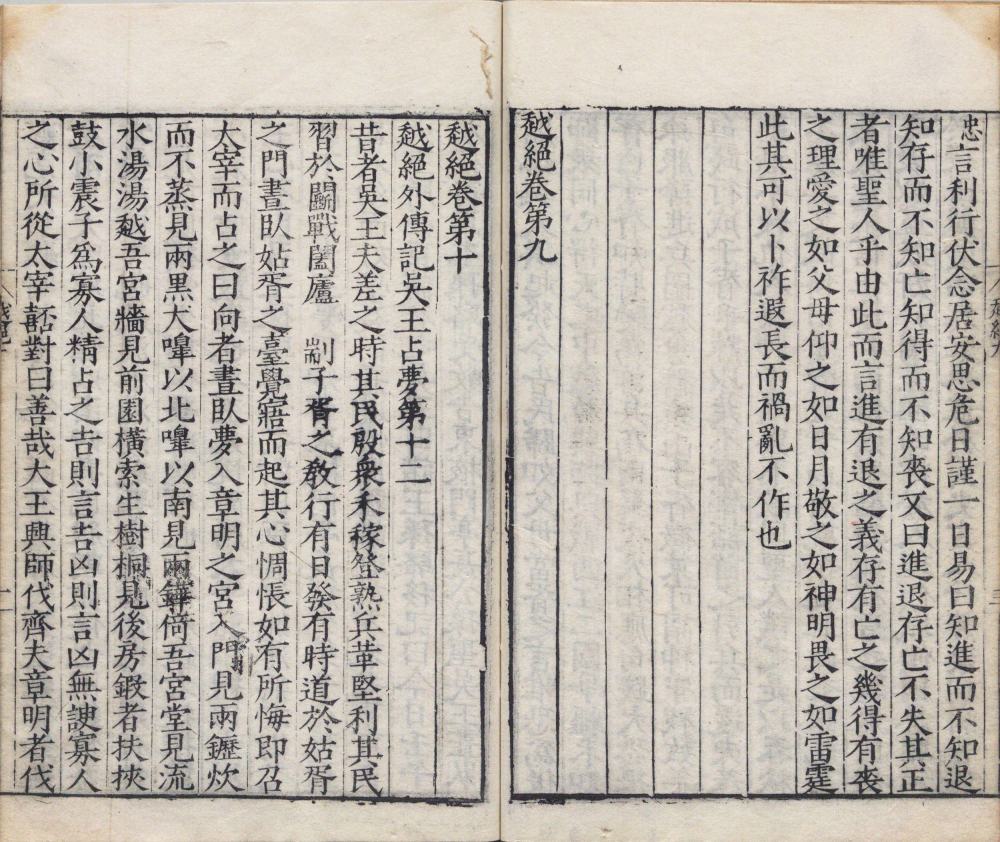 忠言利行伏念居安思危日謹一日易曰知進而不知退
知存而不知亡知得而不知喪又曰進退存亡不失其正
者唯聖人乎由此而言進有退之義存有亡之幾得有喪
之理愛之如父母仰之如日月敬之如神明畏之如雷霆
此其可以卜祚遐長而禍亂不作也
越絕卷第九
越絕卷第十
越絕外傳記吳王占夢第十二
昔者吳王夫差之時其民殷衆禾稼登熟兵革堅利其民
習於鬭戰闔廬 制子胥之敎行有日發有時道於姑胥
之門晝臥姑胥之臺覺寤而起其心惆悵如有所悔即召
太宰而占之曰向者晝臥夢入章明之宮入門見兩鑩炊
而不蒸見兩黑犬嘷以北嘷以南見兩鏵倚吾宮堂見流
水湯湯越吾宮牆見前園橫索生樹桐見後房鍛者扶挾
鼓小震子爲寡人精占之吉則言吉凶則言凶無諛寡人
之心所從太宰嚭對曰善哉大王興師伐齊夫章明者伐